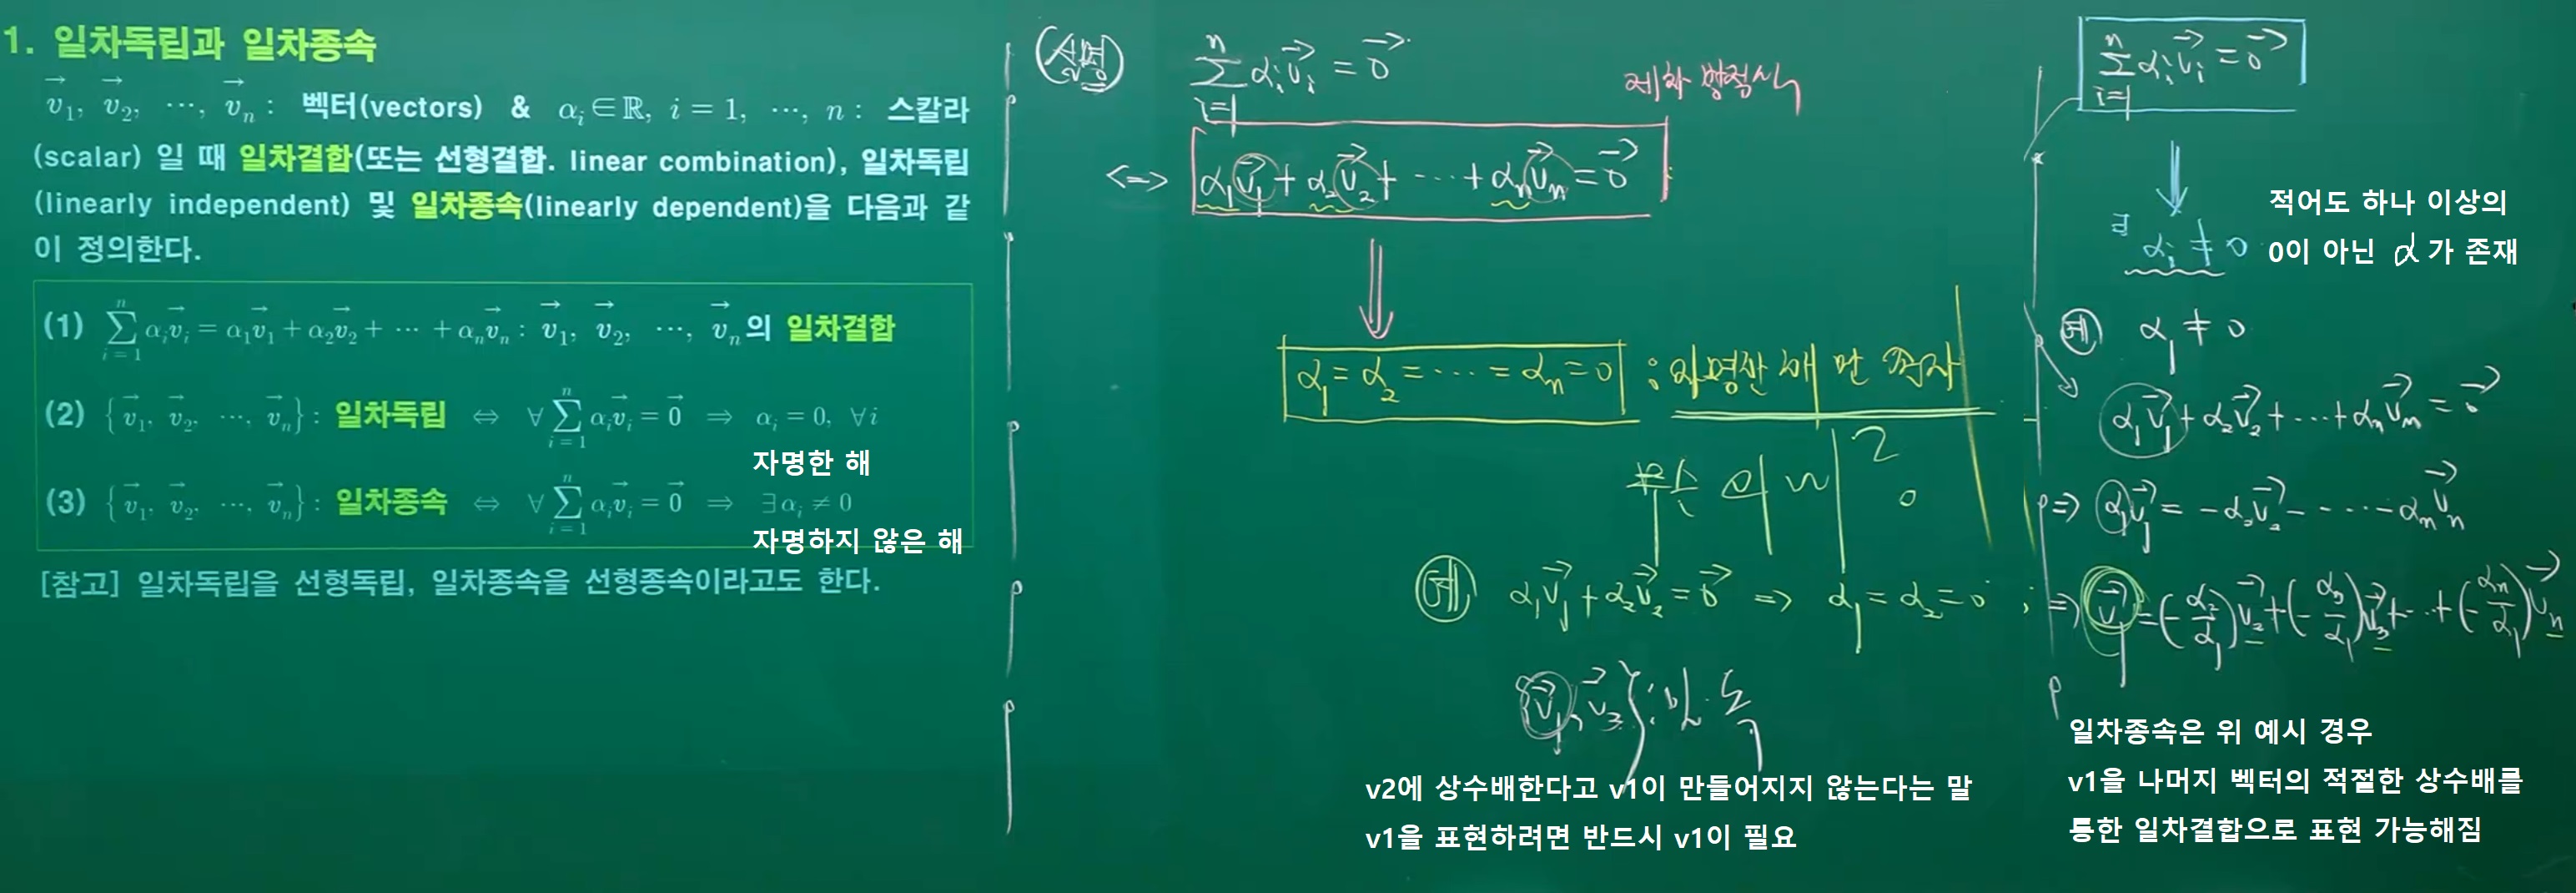 1. 일차독립과 일차종속
v⃗₁, v⃗₂, ⋯, v⃗ₙ : 벡터(vectors) & αᵢ∈ℝ, i = 1, ⋯, n : 스칼라
(scalar) 일 때 일차결합(또는 선형결합. linear combination), 일차독립
(linearly independent) 및 일차종속(linearly dependent)을 다음과 같
이 정의한다.
(1) ∑ᵢ₌₁ⁿ αᵢv⃗ᵢ = α₁v⃗₁ + α₂v⃗₂ + ⋯ + αₙv⃗ₙ : v⃗₁, v⃗₂, ⋯, v⃗ₙ의 일차결합
(2) {v⃗₁, v⃗₂, ⋯, v⃗ₙ} : 일차독립 ⇔ ∀ ∑ᵢ₌₁ⁿ αᵢv⃗ᵢ = 0⃗ ⇒ αᵢ = 0, ∀i
자명한 해
(3) {v⃗₁, v⃗₂, ⋯, v⃗ₙ} : 일차종속 ⇔ ∀ ∑ᵢ₌₁ⁿ αᵢv⃗ᵢ = 0⃗ ⇒ ∃αᵢ ≠ 0
자명하지 않은 해
[참고] 일차독립을 선형독립, 일차종속을 선형종속이라고도 한다.
설명
∑ᵢ₌₁ⁿ αᵢv⃗ᵢ = 0⃗
제차 방정식
<=> α₁v⃗₁ + α₂v⃗₂ + ⋯ + αₙv⃗ₙ = 0⃗
α₁ = α₂ = ⋯ = αₙ = 0 : 자명한 해만 존재
무슨 의미?
예 α₁v⃗₁ + α₂v⃗₂ = 0⃗ => α₁ = α₂ = 0
v2에 상수배한다고 v1이 만들어지지 않는다는 말
v1을 표현하려면 반드시 v1이 필요
∑ᵢ₌₁ⁿ αᵢv⃗ᵢ = 0⃗
∃ αᵢ ≠ 0
적어도 하나 이상의
0이 아닌 α가 존재
예 α₁ ≠ 0
α₁v⃗₁ + α₂v⃗₂ + ⋯ + αₙv⃗ₙ = 0⃗
=> α₁v⃗₁ = -α₂v⃗₂ - ⋯ - αₙv⃗ₙ
=> v⃗₁ = (-α₂/α₁)v⃗₂ + (-α₃/α₁)v⃗₃ + ⋯ + (-αₙ/α₁)v⃗ₙ
일차종속은 위 예시 경우
v1을 나머지 벡터의 적절한 상수배를
통한 일차결합으로 표현 가능해짐